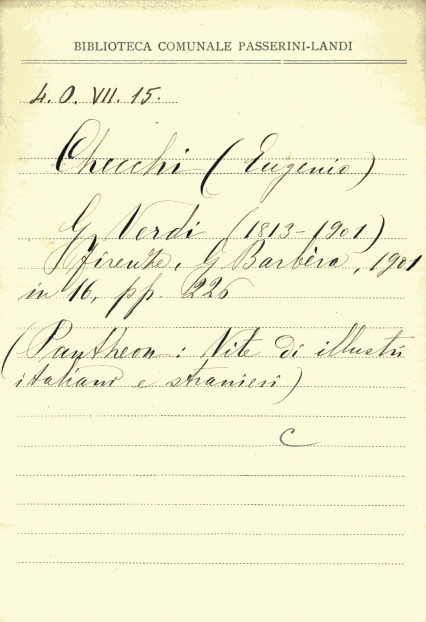 BIBLIOTECA COMUNALE PASSERINI-LANDI
4. O. VII. 15.
Checchi (Eugenio)
G. Verdi (1813-1901)
Firenze, G. Barbèra, 1901
in 16, pp. 226
(Pantheon: Vite di illustri
italiani e stranieri)
C